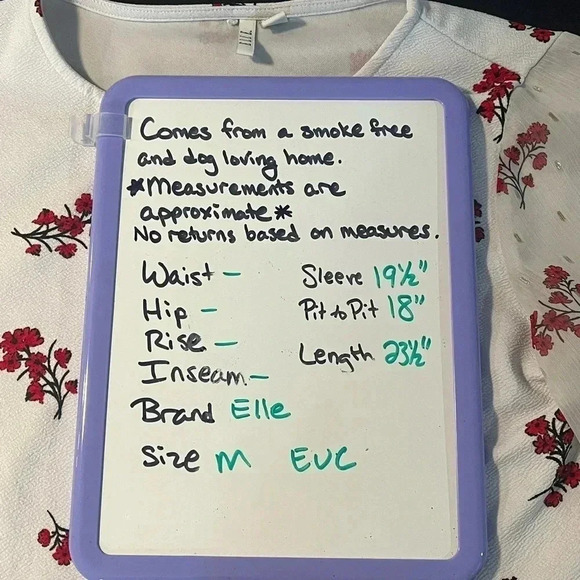 ELLE
Comes from a smoke free
and dog loving home.
*Measurements are
approximate*
No returns based on measures.
Waist - Sleeve 19½"
Hip - Pit to Pit 18"
Rise -
Inseam - Length 23½"
Brand Elle
Size M EUC